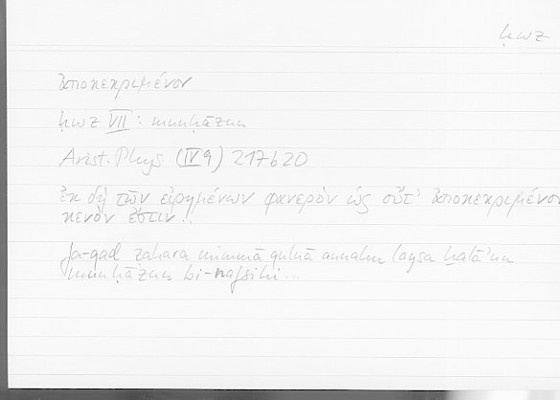 ḥwz
ἀποκεκριμένον
ḥwz VII: munḥāzun
Arist. Phys. (IV 9) 217b20
Ἐκ δὴ τῶν εἰρημένων φανερὸν ὡς οὔτ' ἀποκεκριμένον
κενὸν ἔστιν..
fa-qad zahara mimmā qulnā annahu laysa ḫalā'un
munḥāzun bi-nafsihi...